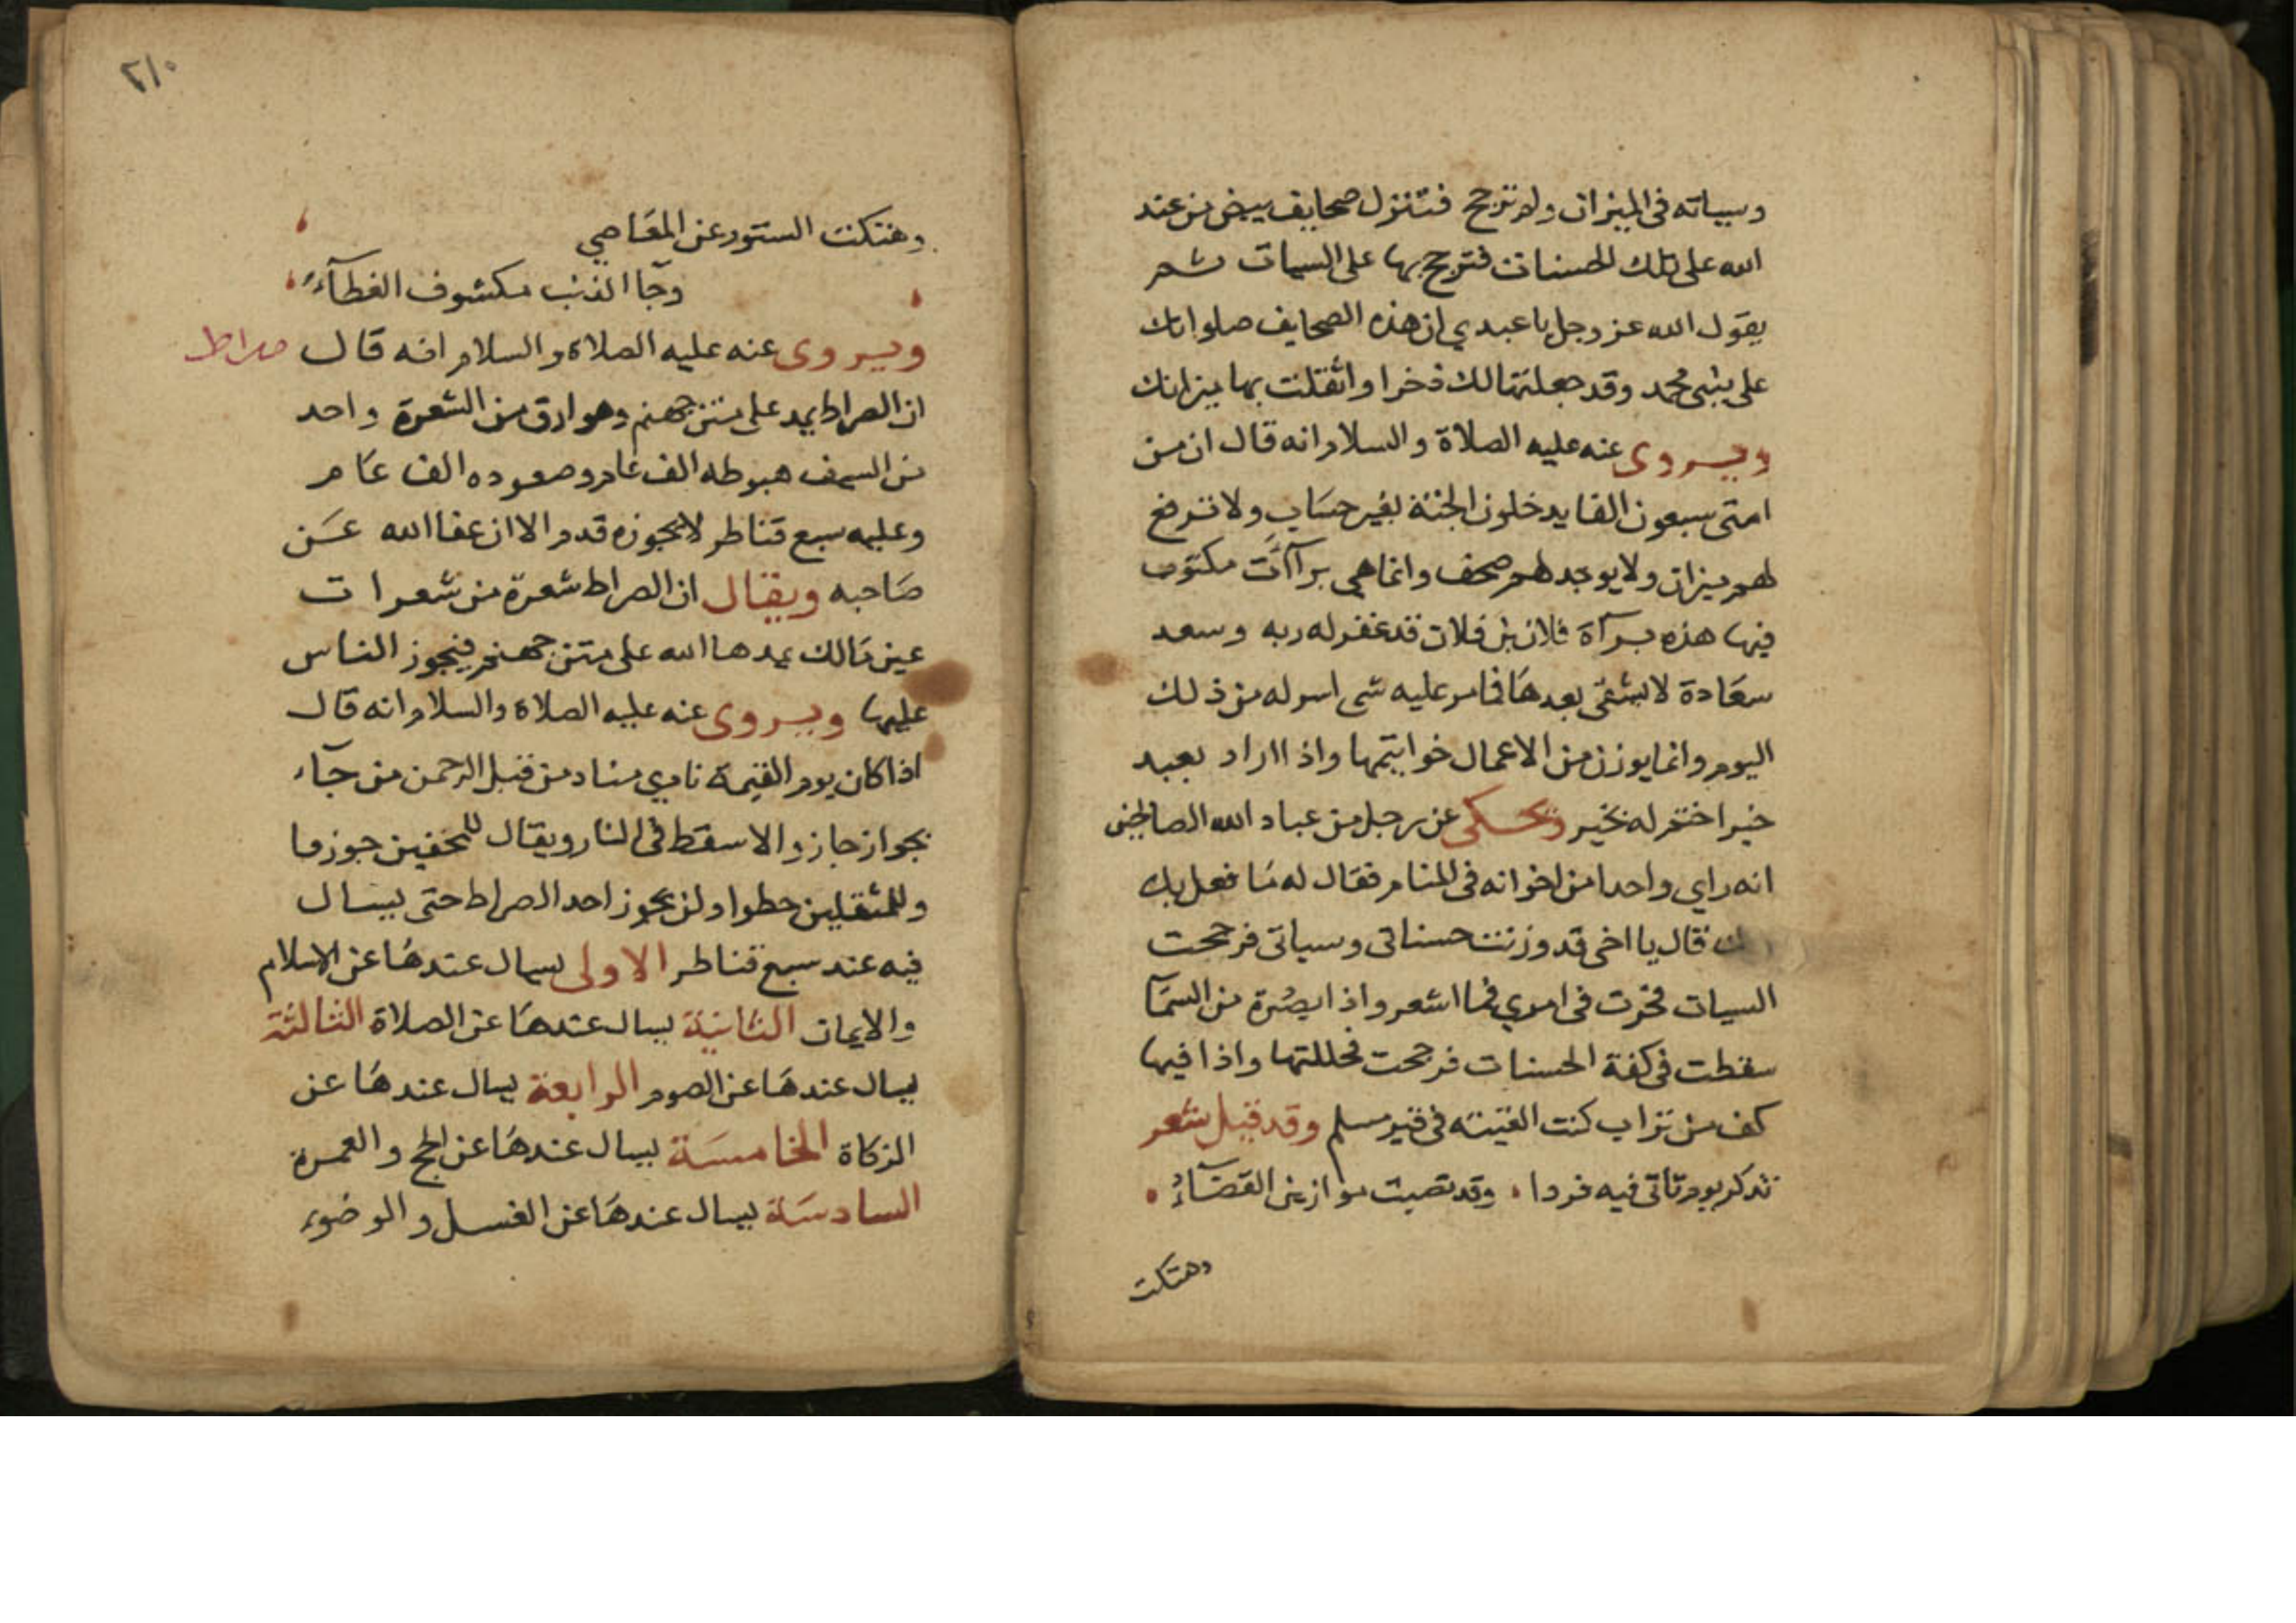 وسياته في الميزان ولم ترجح فتنزل صحايف بيض من عند
الله على تلك الحسنات فترجح بها على السيات ثم
يقول الله عز وجل يا عبدي ان هذه الصحايف صلواتك
على نبيي محمد وقد جعلتها لك ذخرا واثقلت بها ميزانك
ويروى عنه عليه الصلاة والسلام انه قال ان من
امتى سبعون الفا يدخلون الجنة بغير حساب ولا ترفع
لهم ميزان ولا يوجد لهم صحف وانما هي برآآت مكتوب
فيها هذه برآة فلان بن فلان قد غفر له ربه وسعد
سعادة لا يشقى بعدها فما مر عليه شي اسر له من ذلك
اليوم وانما يوزن من الاعمال خوايتمها واذا اراد بعبد
خيرا ختم له بخير ويحكى عن رجل من عباد الله الصالحين
انه راي واحدا من اخوانه في المنام فقال له ما فعل بك
قال يا اخى قد وزنت حسناتى وسياتى فرجحت
السيات فحرت في امري فما اشعر واذا بصرة من السمآ
سقطت في كفة الحسنات فرجحت فحللتها واذا فيها
كف من تراب كنت القيته في قبر مسلم وقد قيل شعر
تذكر يوم تاتى فيه فردا ، وقد نصبت موازين القضآء
وهتكت
٢١٠
وهتكت الستور عن المعاصي
وجا الذنب مكشوف الغطآء
ويروى عنه عليه الصلاة والسلام انه قال
صراط
ان الصراط يمد على متن جهنم وهو ارق من الشعرة واحد
من السيف هبوطه الف عام وصعوده الف عام
وعليه سبع قناطر لا يجوزه قدم الا ان عفا الله عن
صاحبه ويقال ان الصراط شعرة من شعرات
عين مالك يمدها الله على متن جهنم فيجوز الناس
عليها ويروى عنه عليه الصلاة والسلام انه قال
اذا كان يوم القيمة نادي مناد من قبل الرحمن من جآء
بجواز جاز والا سقط في النار ويقال للمخفين جوزوا
وللمثقلين حطوا ولن يجوز احد الصراط حتى يسال
فيه عند سبع قناطر الاولى يسال عندها عن الاسلام
والايمان الثانية يسال عندها عن الصلاة الثالثة
يسال عندها عن الصوم الرابعة يسال عندها عن
الزكاة الخامسة يسال عندها عن الحج والعمرة
السادسة يسال عندها عن الغسل والوضوء